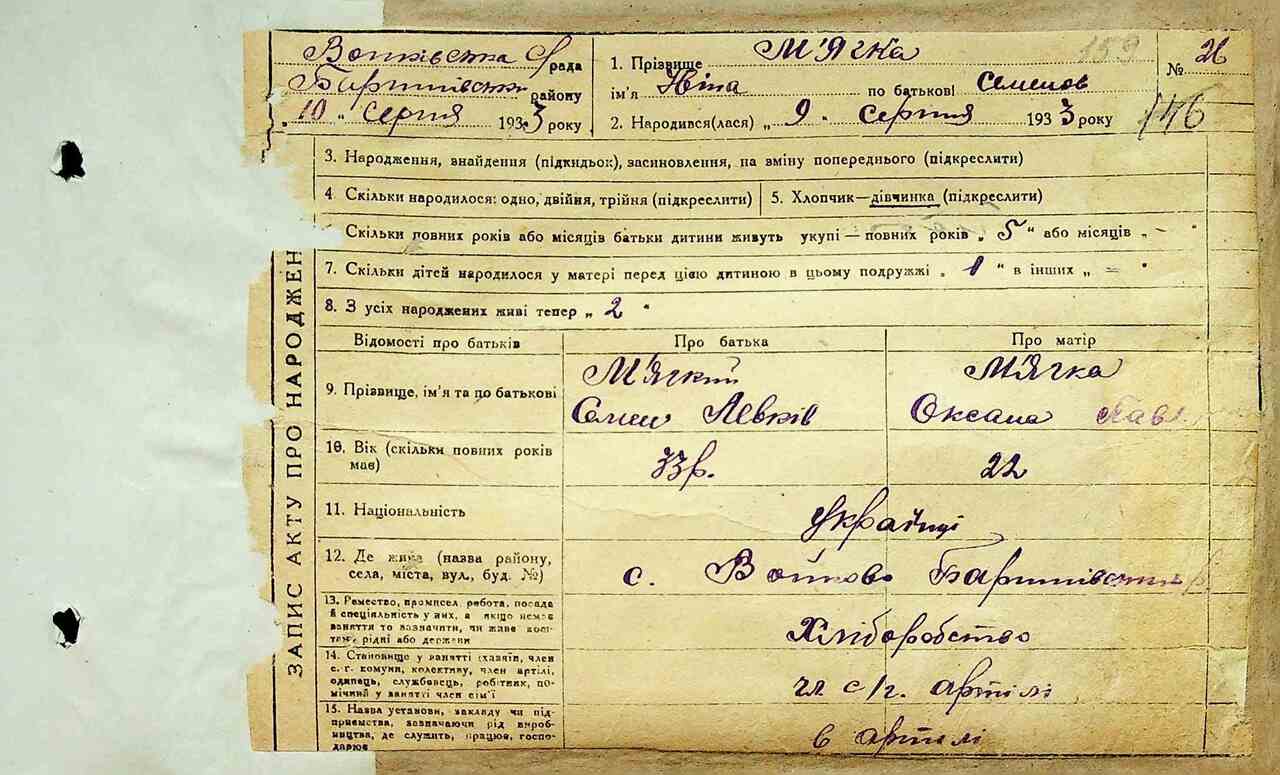 Войківська С/рада
Баришівськ району
„10“ серпня 1933 року
1. Прізвище М'ягка
ім'я Ніна по батькові Семенов
2. Народився(лася) „9“ серпня 1933 року
159
№ 26
146
3. Народження, внайдення (підкидьок), засиновлення, на вміну попереднього (підкреслити)
4. Скільки народилося: одно, двійня, трійня (підкреслити)
5. Хлопчик—дівчинка (підкреслити)
Скільки повних років або місяців батьки дитини живуть укупі — повних років „5“ або місяців „-“
7. Скільки дітей народилося у матері перед цією дитиною в цьому подружжі „1“ в інших „=“
8. З усіх народжених живі тепер „2“
ЗАПИС АКТУ ПРО НАРОДЖЕН
Відомості про батьків
Про батька
Про матір
9. Прізвище, ім'я та по батькові
М'ягкий
Семен Левків
М'ягка
Оксана Пав
10. Вік (скільки повних років
має)
33 р.
22
11. Національність
українці
12. Де живе (назва району,
села, міста, вул., буд. №)
с. Войково Баришівськ р
13. Ремество, промисел, робота, посада
й спеціяльність у них, а якщо немає
заняття то зазначити, чи живе кош-
том рідні або держави
Хліборобство
14. Становище у занятті (хазяїн, член
с. г. комуни, колективу, член артілі,
одипець, службовець, робітник, по-
мічний у занятті член сім'ї
чл с/г. артілі
15. Назва установи, закладу чи під-
приємства, зазначаючи рід вироб-
ництва, де служить, працює, госпо-
дарює
в артілі